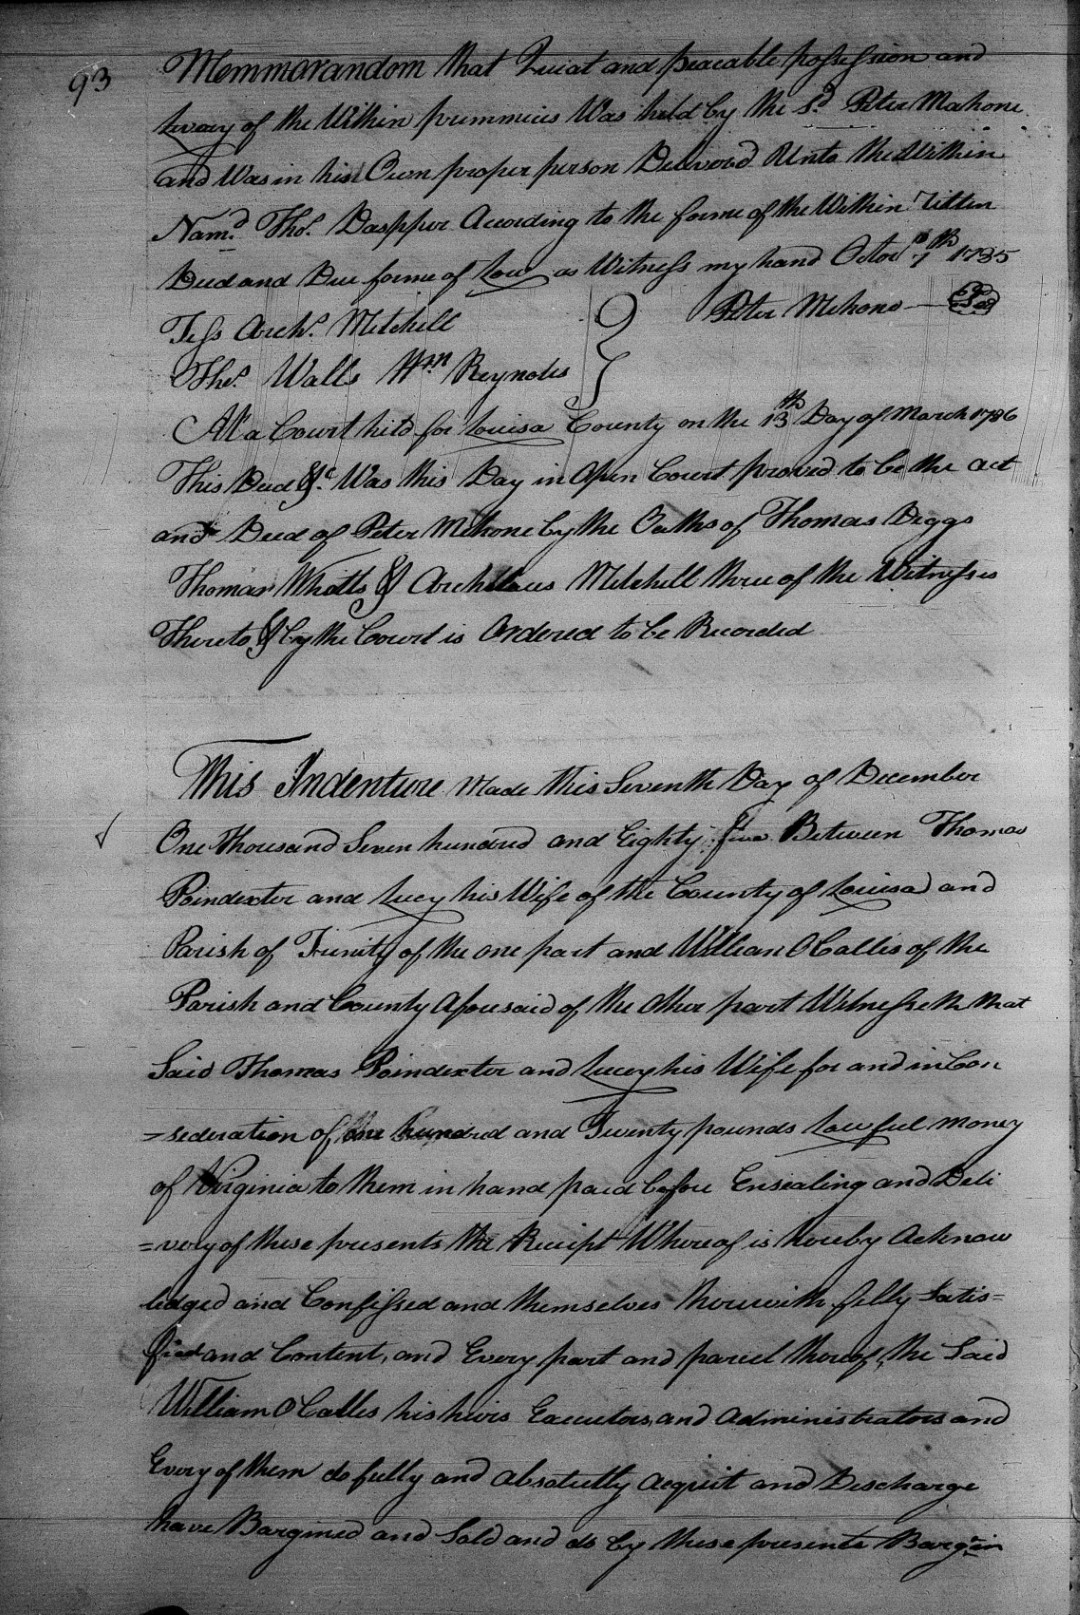 93
Memmorandom that Quiat and peaceable possession and
Livery of the Within premmices Was held by the Sd. Peter Mahone
and Was in his Own proper person Delivered Unto the Within
Namd. Thos. Daspper Acording to the forme of the Within Titten
Deed and Due forme of Law as Witness my hand Octor 7th 1785
Tess Archs. Mitchell
Peter Mehone
Thos. Walls Wm Reynolds
At a Court held for Louisa County on the 13th Day of March 1786
This Deed &c. Was this Day in Open Court proved to be the act
and Deed of Peter Mehone by the Oaths of Thomas Diggs
Thomas Whatts & Archelaus Mitchell three of the Witnesses
Thereto & by the Court is Ordered to be Recorded
This Indenture Made this Seventh Day of December
One Thousand Seven hundred and Eighty five Between Thomas
Poindexter and Lucy his Wife of the County of Louisa and
Parish of Trinity of the one part and William O Callis of the
Parish and County Aforesaid of the Other part Witnesseth that
Said Thomas Poindexter and Lucy his Wife for and in Con
=sederation of One hundred and Twenty pounds Lawful money
of Virginia to them in hand paid before Ensealing and Deli
=very of these presents the Receipt Whereof is hereby Acknow
ledged and Confessed and themselves therewith fully Satis=
fied and Content, and Every part and parcel thereof, the Said
William O Calles his heirs Executors, and Administrators and
Every of them do fully and absolutlly acquit and Discharge
have Bargined and Sold and do by these presents Bargin